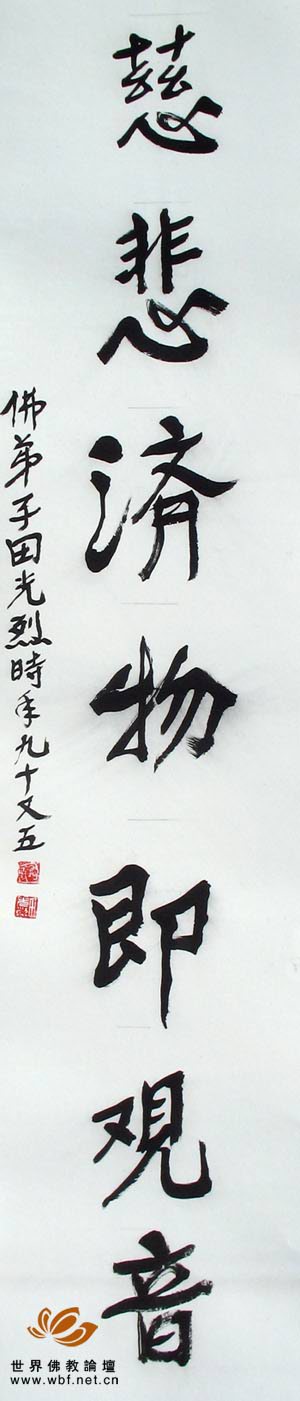 慈悲済物即观音
佛弟子田光烈時年九十又五
世界佛教論壇
www.wbf.net.cn